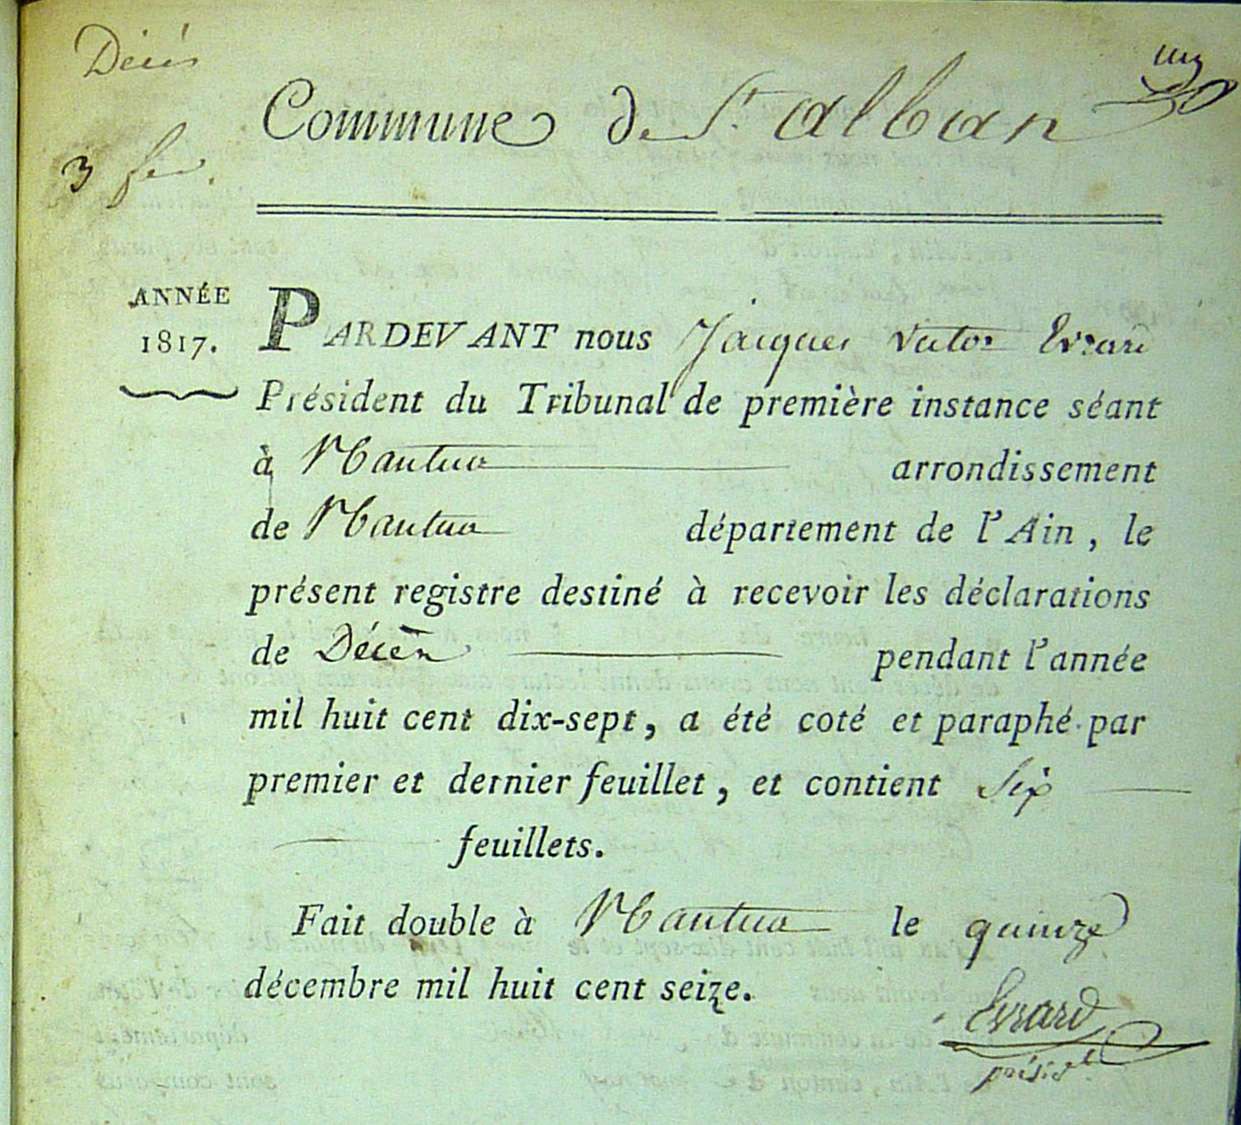 Décès
un
Commune de St. alban
3 feu.
ANNÉE
1817.
PARDEVANT nous Jacques Victor Evrard
Président du Tribunal de première instance séant
à Nantua arrondissement
de Nantua département de l'Ain, le
présent registre destiné à recevoir les déclarations
de Décès pendant l'année
mil huit cent dix-sept, a été coté et paraphé par
premier et dernier feuillet, et contient Six
feuillets.
Fait double à Nantua le quinze
décembre mil huit cent seize.
Evrard
présidt